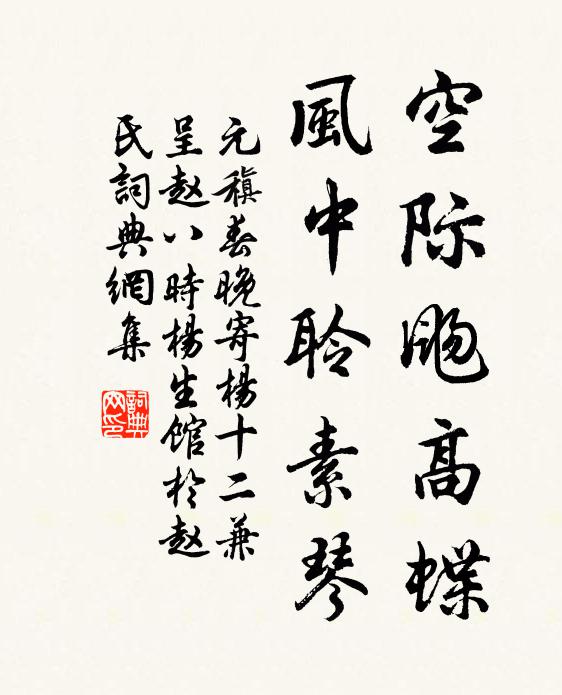 空际飏高蝶
風中聆素琴
元稹春晚寄楊十二兼
呈赵八時楊生馆於赵
氏詞典網集
詞典网印